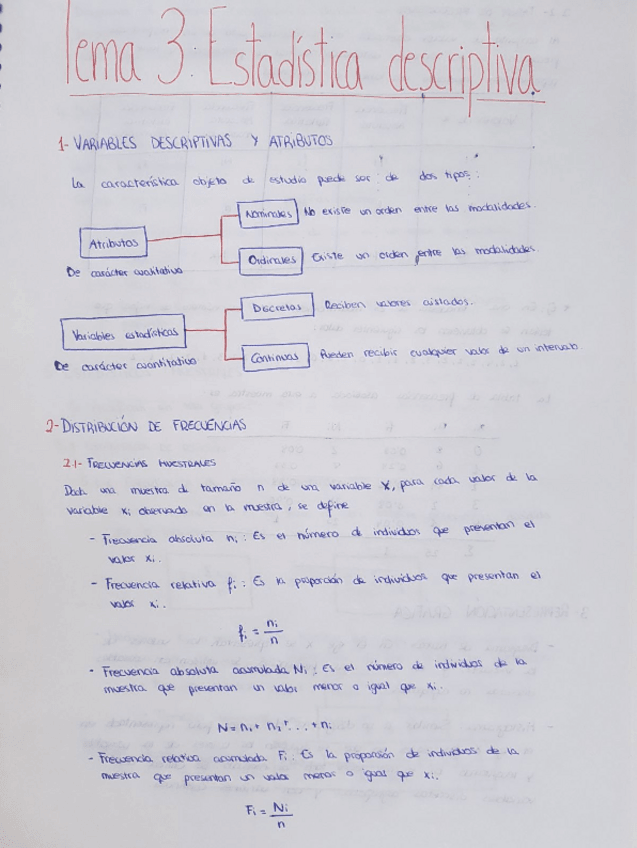 Tema 3: Estadística descriptiva
1- VARIABLES DESCRIPTIVAS Y ATRIBUTOS
La característica objeto de estudio puede ser de dos tipos:
Nominales No existe un orden entre las modalidades.
Atributos
Ordinales Existe un orden entre las modalidades.
De carácter cualitativo
Discretas Reciben valores aislados.
Variables estadísticas
Continuas Pueden recibir cualquier valor de un intervalo.
De carácter cuantitativo
2- DISTRIBUCIÓN DE FRECUENCIAS
2.1- FRECUENCIAS MUESTRALES
Dada una muestra de tamaño n de una variable X, para cada valor de la
variable xi observado en la muestra, se define
- Frecuencia absoluta ni: Es el número de individuos que presentan el
valor xi.
- Frecuencia relativa fi: Es la proporción de individuos que presentan el
valor xi.
fi = ni/n
- Frecuencia absoluta acumulada Ni: Es el número de individuos de la
muestra que presentan un valor menor o igual que xi.
N = n1 + n2 + ... + ni
- Frecuencia relativa acumulada Fi: Es la proporción de individuos de la
muestra que presentan un valor menor o igual que xi.
Fi = Ni/n